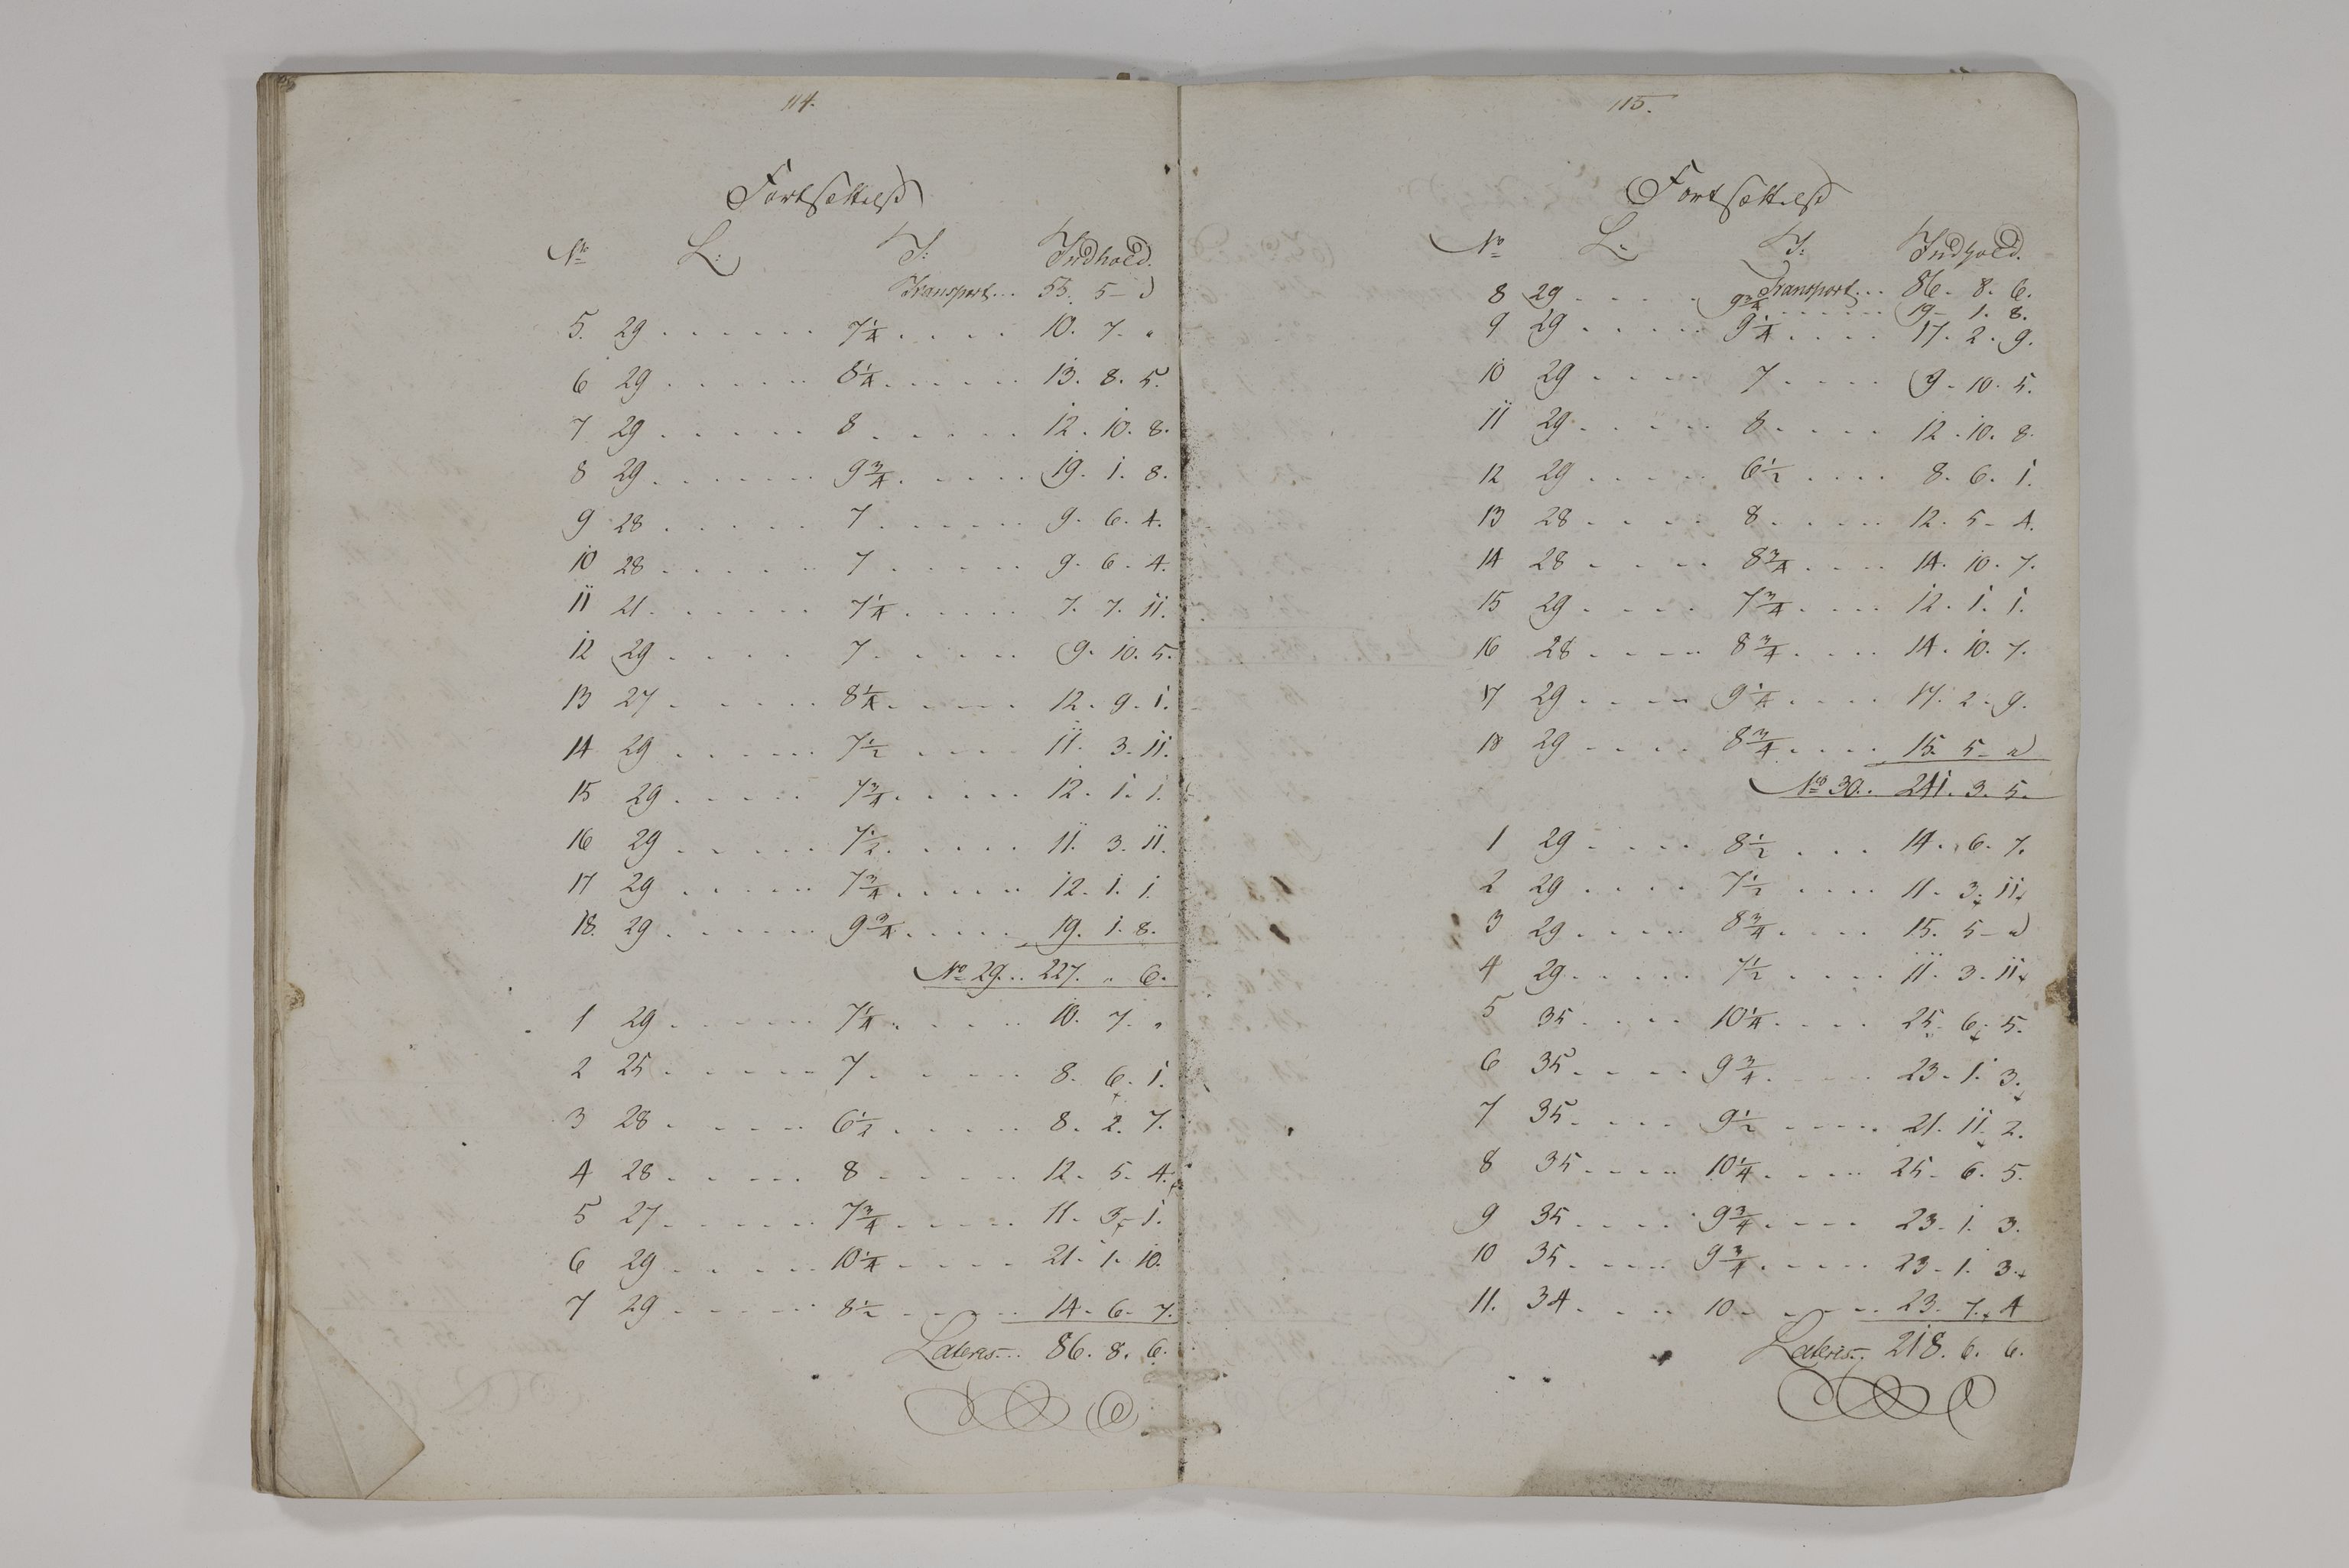 114.
Fortsættelse
No L: T: Indhold.
Transport... 53. 5 - "
5. 29 ...... 7 1/4 .... 10. 7. "
6 29 ...... 8 1/4 ..... 13. 8. 5.
7 29 ..... 8 ..... 12. 10. 8.
8 29 ....... 9 3/4 ..... 19. 1. 8.
9 28 ..... 7 ..... 9. 6. 4.
10 28 ...... 7 ..... 9. 6. 4.
11 21 ...... 7 1/4 ..... 7. 7. 11.
12 29 .... 7 ..... 9. 10. 5.
13 27 ..... 8 1/4 ..... 12. 9. 1.
14 29 ...... 7 1/2 .... 11. 3. 11.
15 29 ..... 7 3/4 ..... 12. 1. 1.
16 29 ..... 7 1/2 ..... 11. 3. 11.
17 29 ..... 7 3/4 ..... 12. 1. 1.
18. 29 ...... 9 3/4 ..... 19. 1. 8.
No 29... 227. " 6.
1 29 ..... 7 1/4 ..... 10. 7. "
2 25 ..... 7 ..... 8. 6. 1.
3 28 ..... 6 1/2 ..... 8. 2. 7.
4 28 ..... 8 ..... 12. 5. 4.
5 27 ...... 7 3/4 ..... 11. 3. 1.
6 29 ..... 10 1/4 ..... 21. 1. 10.
7 29 ..... 8 1/2 ..... 14. 6. 7.
Lateris... 86. 8. 6.
115.
Fortsættelse
No L: T: Indhold.
Transport... 86. 8. 6.
8 29 ..... 9 3/4 ...... 19. 1. 8.
9 29 ..... 9 1/4 .... 17. 2. 9.
10 29 .... 7 .... 9. 10. 5.
11 29 ..... 8 .... 12. 10. 8.
12 29 ..... 6 1/2 .... 8. 6. 1.
13 28 .... 8 ..... 12. 5 - 4.
14 28 .... 8 3/4 .... 14. 10. 7.
15 29 .... 7 3/4 .... 12. 1. 1.
16 28 ..... 8 3/4 .... 14. 10. 7.
17 29 .... 9 1/4 .... 17. 2. 9.
18 29 .... 8 3/4 .... 15. 5 - "
No 30.. 241. 3. 5.
1 29 .... 8 1/2 ... 14. 6. 7.
2 29 .... 7 1/2 .... 11. 3. 11.
3 29 .... 8 3/4 .... 15. 5 - "
4 29 ..... 7 1/2 .... 11. 3. 11.
5 35 .... 10 1/4 .... 25. 6. 5.
6 35 .... 9 3/4 .... 23. 1. 3.
7 35 .... 9 1/2 ..... 21. 11. 2.
8 35 ..... 10 1/4 .... 25. 6. 5.
9 35 .... 9 3/4 .... 23. 1. 3.
10 35 ..... 9 3/4 ..... 23. 1. 3.
11. 34 .... 10 ..... 23. 7. 4
Lateris... 218. 6. 6.